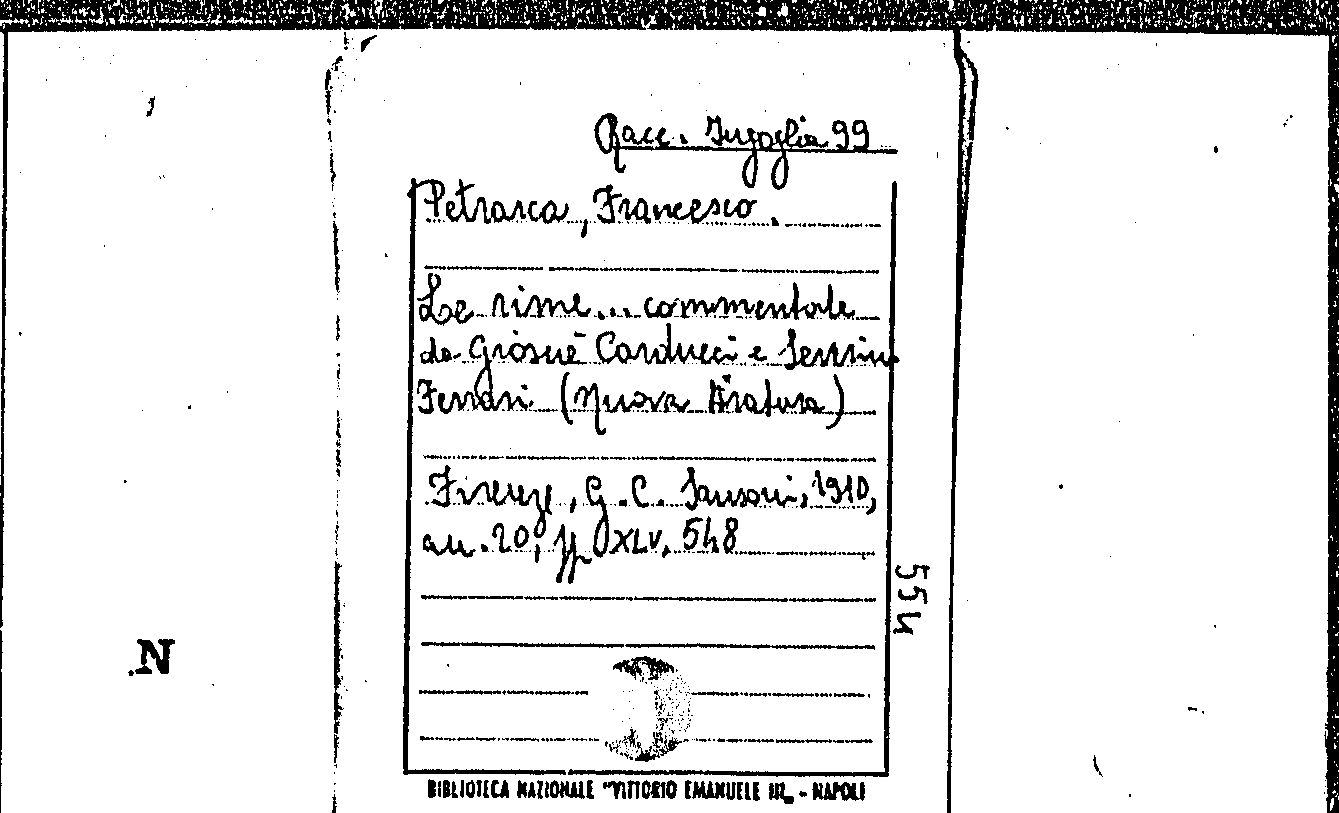 Racc. Ingoglia 99
Petrarca, Francesco.
Le rime... commentate
da Giosuè Carducci e Severino
Ferrari (Nuova tiratura)
Firenze, G. C. Sansoni, 1910,
au. 20, pp XLV, 548
554
N
BIBLIOTECA NAZIONALE "VITTORIO EMANUELE III„ - NAPOLI